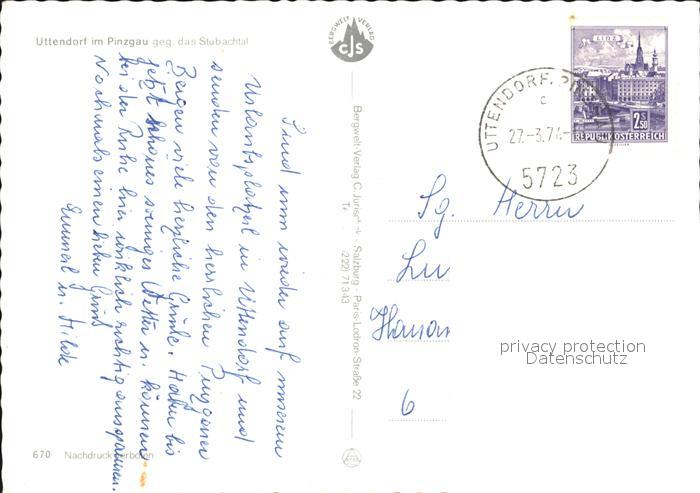 Uttendorf im Pinzgau geg. das Stubachtal
Sind nun wieder auf unserem
Urlaubsplatzl in Uttendorf und
senden von den herrlichen Pinzgauer
Bergen viele herzliche Grüße. Haben bis
jetzt schönes sonniges Wetter u. können
bei der Ruhe hier wirklich richtig ausspannen.
Nochmals einen lieben Gruß
u. Hilde
670 Nachdruck verboten
BERGWELT VERLAG
CJS
Bergwelt-Verlag C. Salzburg - Paris-Lodron-Straße 22
(222) 71343
LINZ
2.50
REPUBLIK ÖSTERREICH
UTTENDORF, PI
c
27.-3.74-
5723
Sg. Herrn
Lu
6
privacy protection
Datenschutz